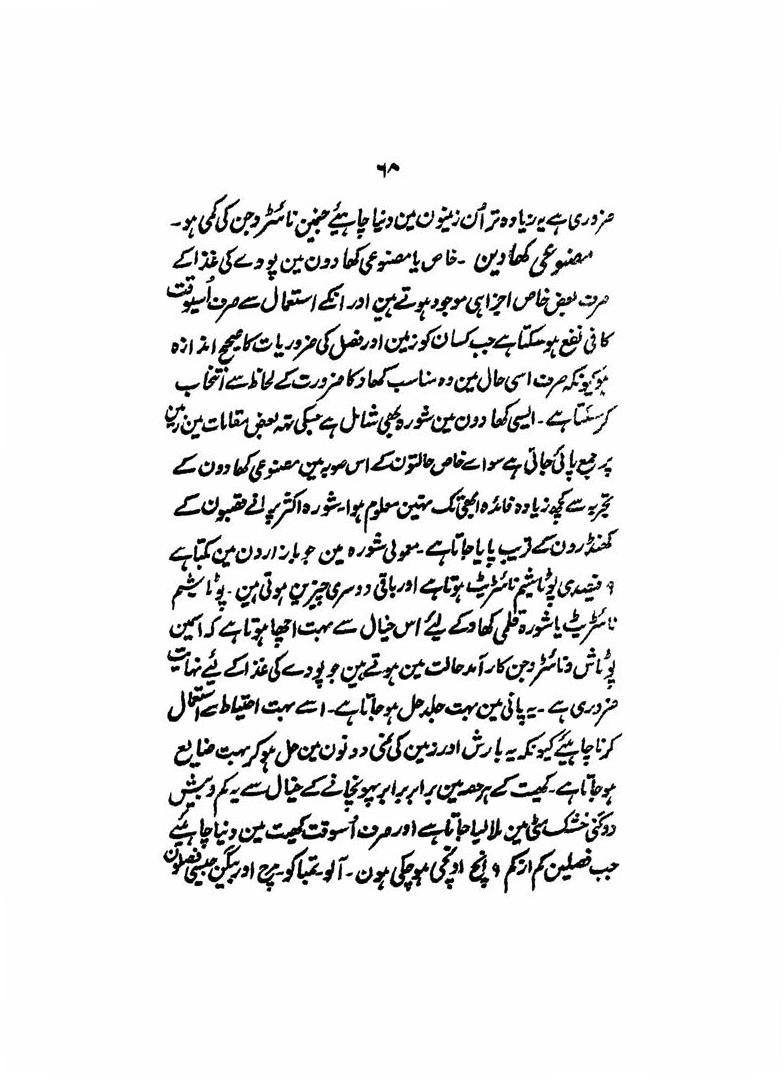 ۶۸
ضروری ہے یہ زیادہ تر اُن زمینون مین دنیا چاہیئے جنمین نائٹروجن کی کمی ہو۔
مصنوعی کھادین ۔ خاص یا مصنوعی کھادون مین پودے کی غذا کے
صرف بعض خاص اجزا ہی موجود ہوتے ہین اور انکے استعمال سے صرف اُسیوقت
کافی نفع ہو سکتا ہے جب کسان کو زمین اور فصل کی ضروریات کا صحیح اندازہ
ہو کیونکہ صرف اسی حال مین وہ مناسب کھاد کا ضرورت کے لحاظ سے انتخاب
کر سکتا ہے ۔ ایسی کھادون مین شورہ بھی شامل ہے جسکی تہ بعض مقامات مین زمین
پر جمع پائی جاتی ہے سواے خاص حالتون کے اس صوبہ مین مصنوعی کھادون کے
تجربہ سے کچھ زیادہ فائدہ ابھی تک نہین معلوم ہوا۔ شورہ اکثر پرانے قصبون کے
کھنڈرون کے قریب پایا جاتا ہے ۔ معمولی شورہ مین جو بازارون مین بکتا ہے
۹ فیصدی پوٹاشیم نائٹریٹ ہوتا ہے اور باقی دوسری چیزین ہوتی ہین ۔ پوٹاشیم
نائٹریٹ یا شورہ قلمی کھاد کے لیئے اس خیال سے بہت اچھا ہوتا ہے کہ اسمین
پوٹاش و نائٹروجن کارآمد حالت مین ہوتے ہین جو پودے کی غذا کے لئے نہایت
ضروری ہے ۔ یہ پانی مین بہت جلد حل ہو جاتا ہے ۔ اسے بہت احتیاط سے استعمال
کرنا چاہیئے کیونکہ یہ بارش اور زمین کی نمی دونون مین حل ہو کر بہت ضایع
ہو جاتا ہے ۔ کھیت کے ہر حصہ مین برابر برابر پہونچانے کے خیال سے یہ کم و بیش
دوگنی خشک مٹی مین ملا لیا جاتا ہے اور صرف اُسوقت کھیت مین دنیا چاہیئے
جب فصلین کم از کم ۹ انچ اونچی ہو چکی ہون ۔ آلو تمباکو مرچ اور بیگن جیسی فصلون